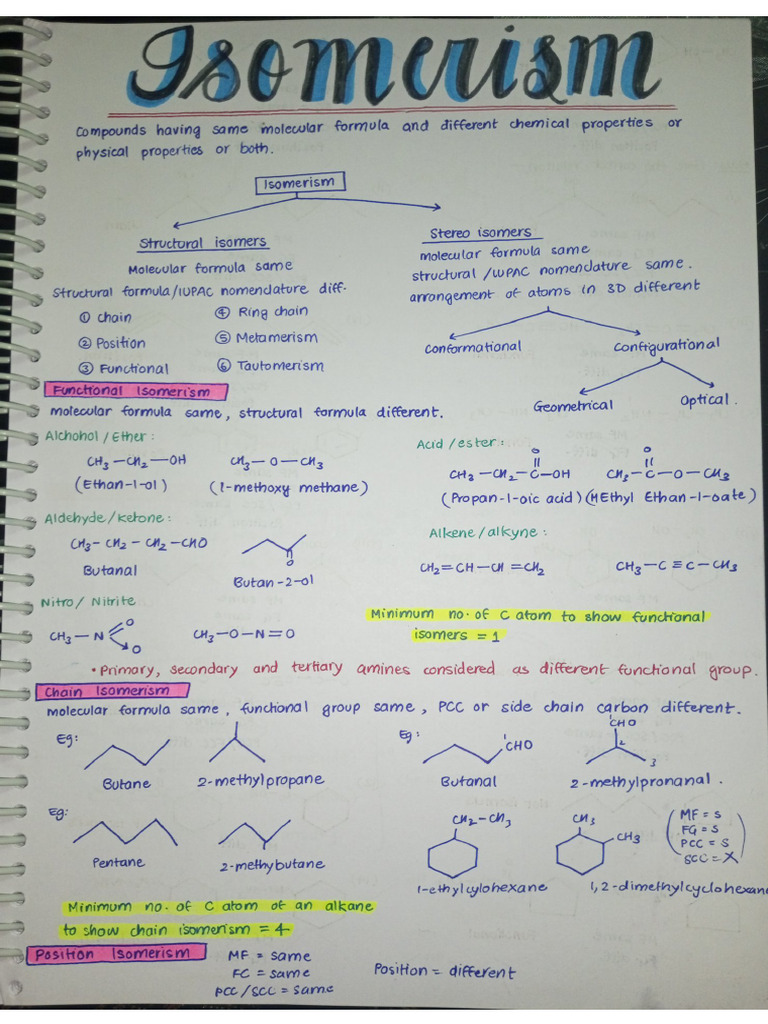 Isomerism
Compounds having same molecular formula and different chemical properties or
physical properties or both.
Isomerism
Structural isomers
Molecular formula same
Structural formula/IUPAC nomenclature diff.
① Chain
② Position
③ Functional
④ Ring chain
⑤ Metamerism
⑥ Tautomerism
Stereo isomers
molecular formula same
structural /IUPAC nomenclature same.
arrangement of atoms in 3D different
Conformational
Configurational
Geometrical
Optical.
Functional Isomerism
molecular formula same, structural formula different.
Alchohol / Ether :
CH3 — CH2 — OH
(Ethan-1-ol)
CH3 — O — CH3
(1-methoxy methane)
Acid / ester :
O
CH3 — CH2 — C — OH
(Propan-1-oic acid)
O
CH3 — C — O — CH3
(MEthyl Ethan-1-oate)
Aldehyde / ketone :
CH3 - CH2 - CH2 - CHO
Butanal
O
Butan-2-ol
Alkene / alkyne :
CH2 = CH — CH = CH2
CH3 — C ≡ C — CH3
Nitro / Nitrite
CH3 — N
O
O
CH3 — O — N = O
Minimum no. of C atom to show functional
isomers = 1
• Primary, secondary and tertiary amines considered as different functional group.
Chain Isomerism
molecular formula same, functional group same, PCC or side chain carbon different.
Eg:
Butane
2-methylpropane
Eg:
1
CHO
Butanal
1
CHO
2
3
2-methylpronanal.
Eg:
Pentane
2-methybutane
CH2 — CH3
1-ethylcylohexane
CH3
CH3
1,2-dimethylcyclohexan
MF = S
FG = S
PCC = S
SCC = X
Minimum no. of C atom of an alkane
to show chain isomerism = 4
Position Isomerism
MF = same
FC = same
PCC / SCC = same
Position = different